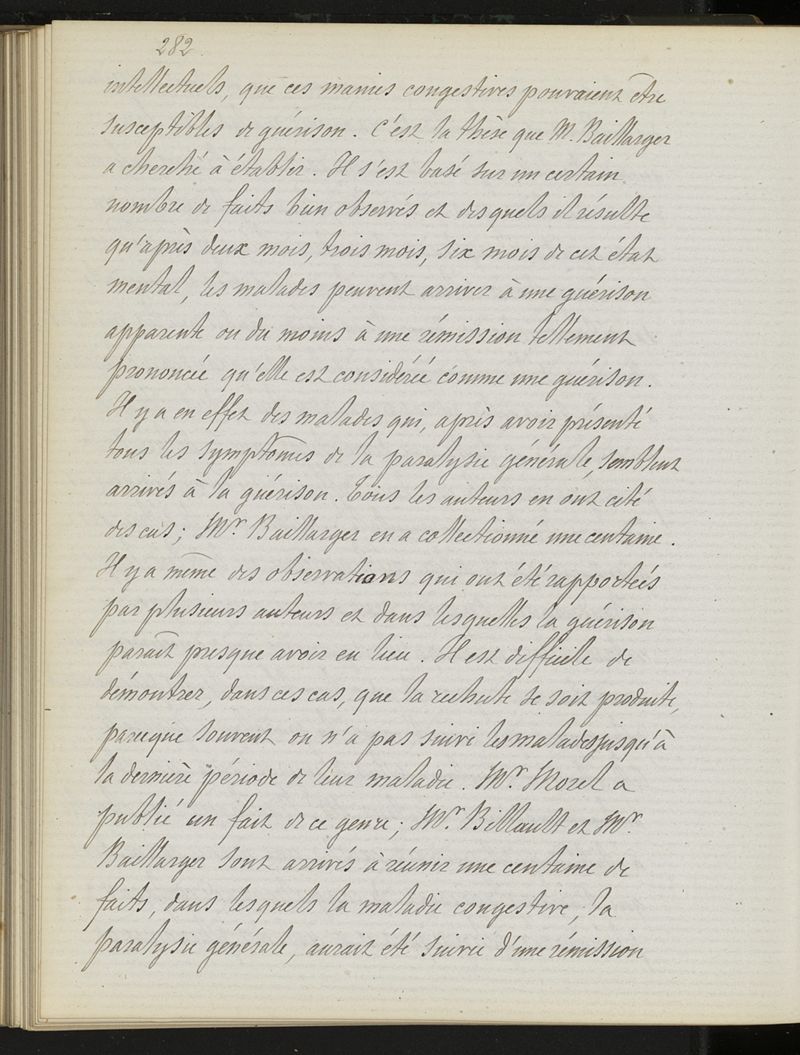 282.
intellectuels, que ces manies congestives pouvaient être
susceptibles de guérison. C'est la thèse que M. Baillarger
a cherché à établir. Il s'est basé sur un certain
nombre de faits bien observés et desquels il résulte
qu'après deux mois, trois mois, six mois de cet état
mental, les malades peuvent arriver à une guérison
apparente ou du moins à une rémission tellement
prononcée qu'elle est considérée comme une guérison.
Il y a en effet des malades qui, après avoir présenté
tous les symptômes de la paralysie générale, semblent
arrivés à la guérison. Tous les auteurs en ont cité
des cas; Mr. Baillarger en a collectionné une centaine.
Il y a même des observations qui ont été rapportées
par plusieurs auteurs et dans lesquelles la guérison
paraît presque avoir eu lieu. Il est difficile de
démontrer, dans ces cas, que la rechute se soit produite,
parceque souvent on n'a pas suivi les malades jusqu'à
la dernière période de leur maladie. Mr. Morel a
publié un fait de ce genre; Mr. Billault et Mr.
Baillarger sont arrivés à réunir une centaine de
faits, dans lesquels la maladie congestive, la
paralysie générale, aurait été suivie d'une rémission